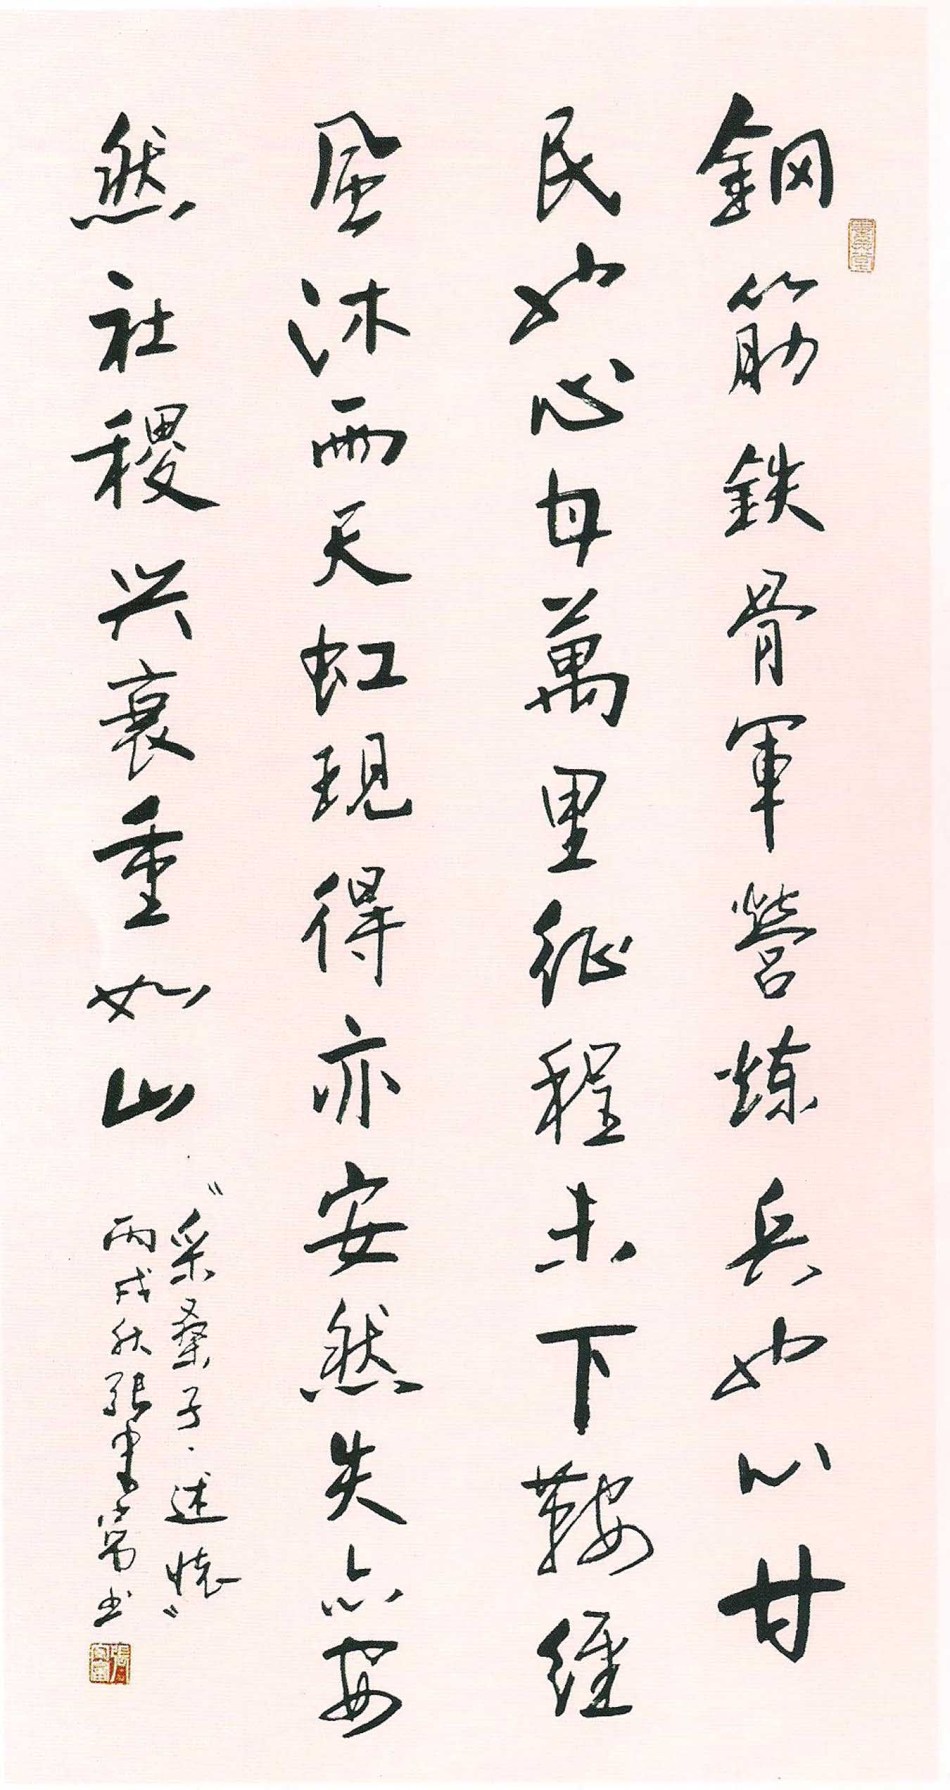 鋼筋鉄骨軍營炼兵也心甘
民也心甘萬里征程未下鞍經
風沐雨天虹現得亦安然失亦安
然社稷兴衰重如山
“采桑子·述懷”
丙戌秋張富书